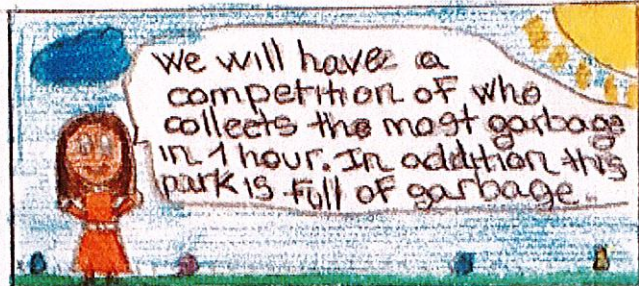 We will have a
competition of who
collects the most garbage
in 1 hour. In addition this
park is full of garbage.